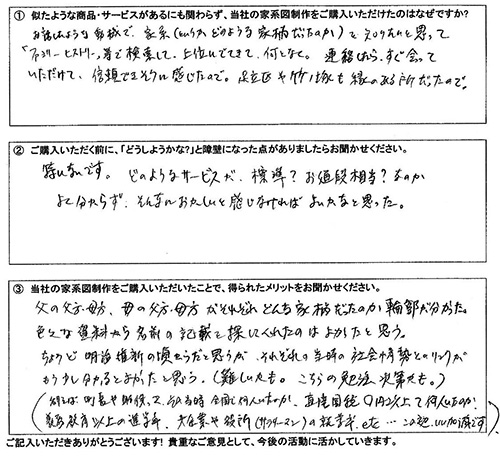 ① 似たような商品・サービスがあるにも関わらず、当社の家系図制作をご購入いただけたのはなぜですか?
家系(というか どのような家柄だったのか)を知りたいと思って
「ファミリーヒストリー」等で検索して、上位にでてきて、何となく。連絡したら、すぐ会って
いただけて、信頼できそうに感じたので。足立区や竹ノ塚も縁のある所だったので。
② ご購入いただく前に、「どうしようかな?」と障壁になった点がありましたらお聞かせください。
特にないです。どのようなサービスが、標準?お値段相当?なのか
よく分からず、そんなにおかしいと感じなければよいかなと思った。
③ 当社の家系図制作をご購入いただいたことで、得られたメリットをお聞かせください。
父の父方・母方、母の父方・母方がそれぞれどんな家柄だったのか輪郭が分かった。
色々な資料から名前の記載を探してくれたのはよかったと思う。
ちょうど明治維新の頃だからだと思うが、それぞれの当時の社会情勢とのリンクが
もう少し分かるとよかったと思う。(難しいかも。こちらの勉強次第かも。)
(例えば町長や助役、又、その当時全国で何人いたのか、直接国税〇円以上って何人いたのか、
義務教育以上の進学率、大企業や役所(サラリーマン)の就業率、etc…
ご記入いただきありがとうございます! 貴重なご意見として、今後の活動に活かしていきます。